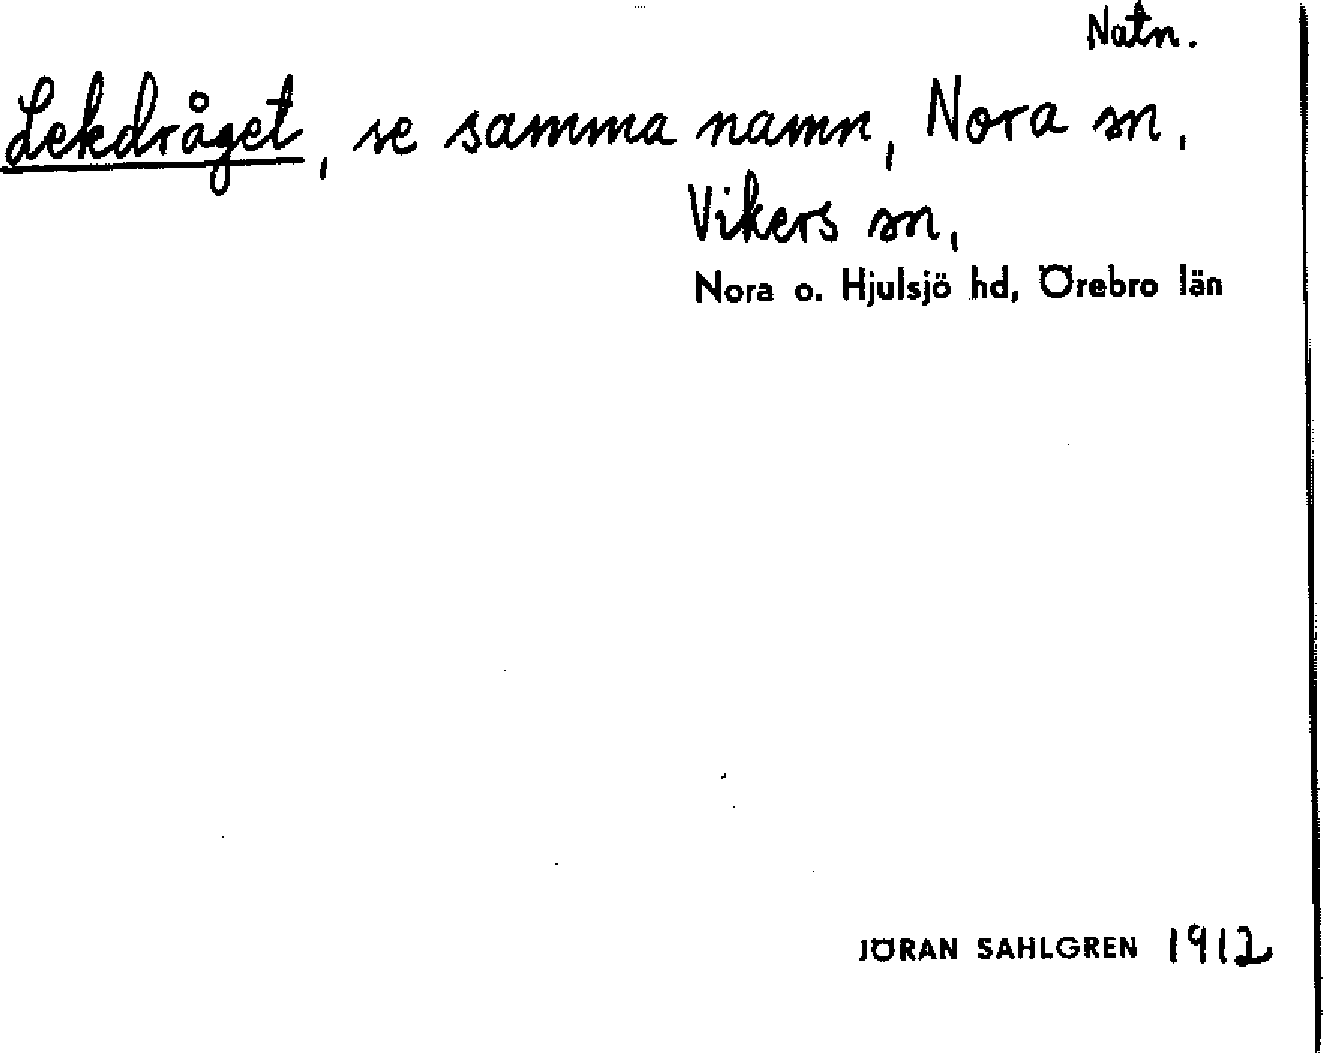 Natn.
Lekdråget, se samma namn, Nora sn,
Vikers sn,
Nora o. Hjulsjö hd, Örebro län
JÖRAN SAHLGREN 1912